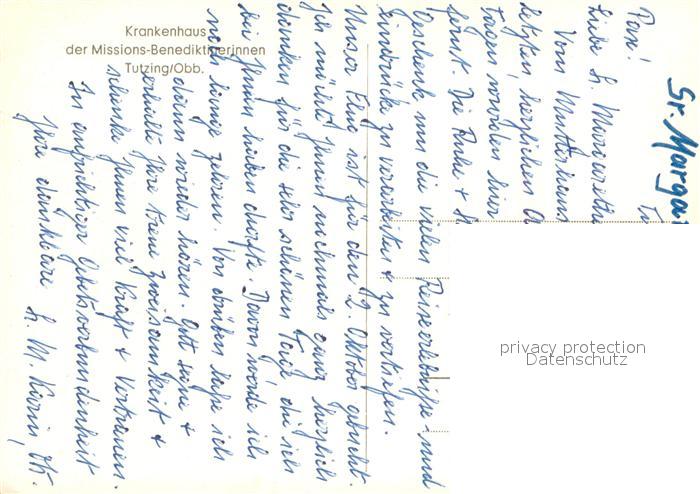 Krankenhaus
der Missions-Benediktinerinnen
Tutzing/Obb.
Sr. Marga
Pax!
Liebe Sr. Margarethe
Vom Mutterhaus
letzten herzlichen
tagen werden hier
fernt. Die Ruhe +
Geschenk um die vielen Reiseerlebnisse und
Eindrücke zu verarbeiten + zu vertiefen.
Unser Flug ist für den 2. Oktober gebucht.
Ich möchte Ihnen nochmals ganz herzlich
danken für die sehr schönen Tage die ich
bei Ihnen haben durfte. Davon werde ich
noch lange zehren. Von drüben lasse ich
dann wieder hören. Gott segne +
erhalte Ihre treue Zweisamkeit +
schenke Ihnen viel Kraft + Vertrauen.
In aufrichtiger Gebetsverbundenheit
Ihre dankbare Sr. M. Karin
privacy protection
Datenschutz